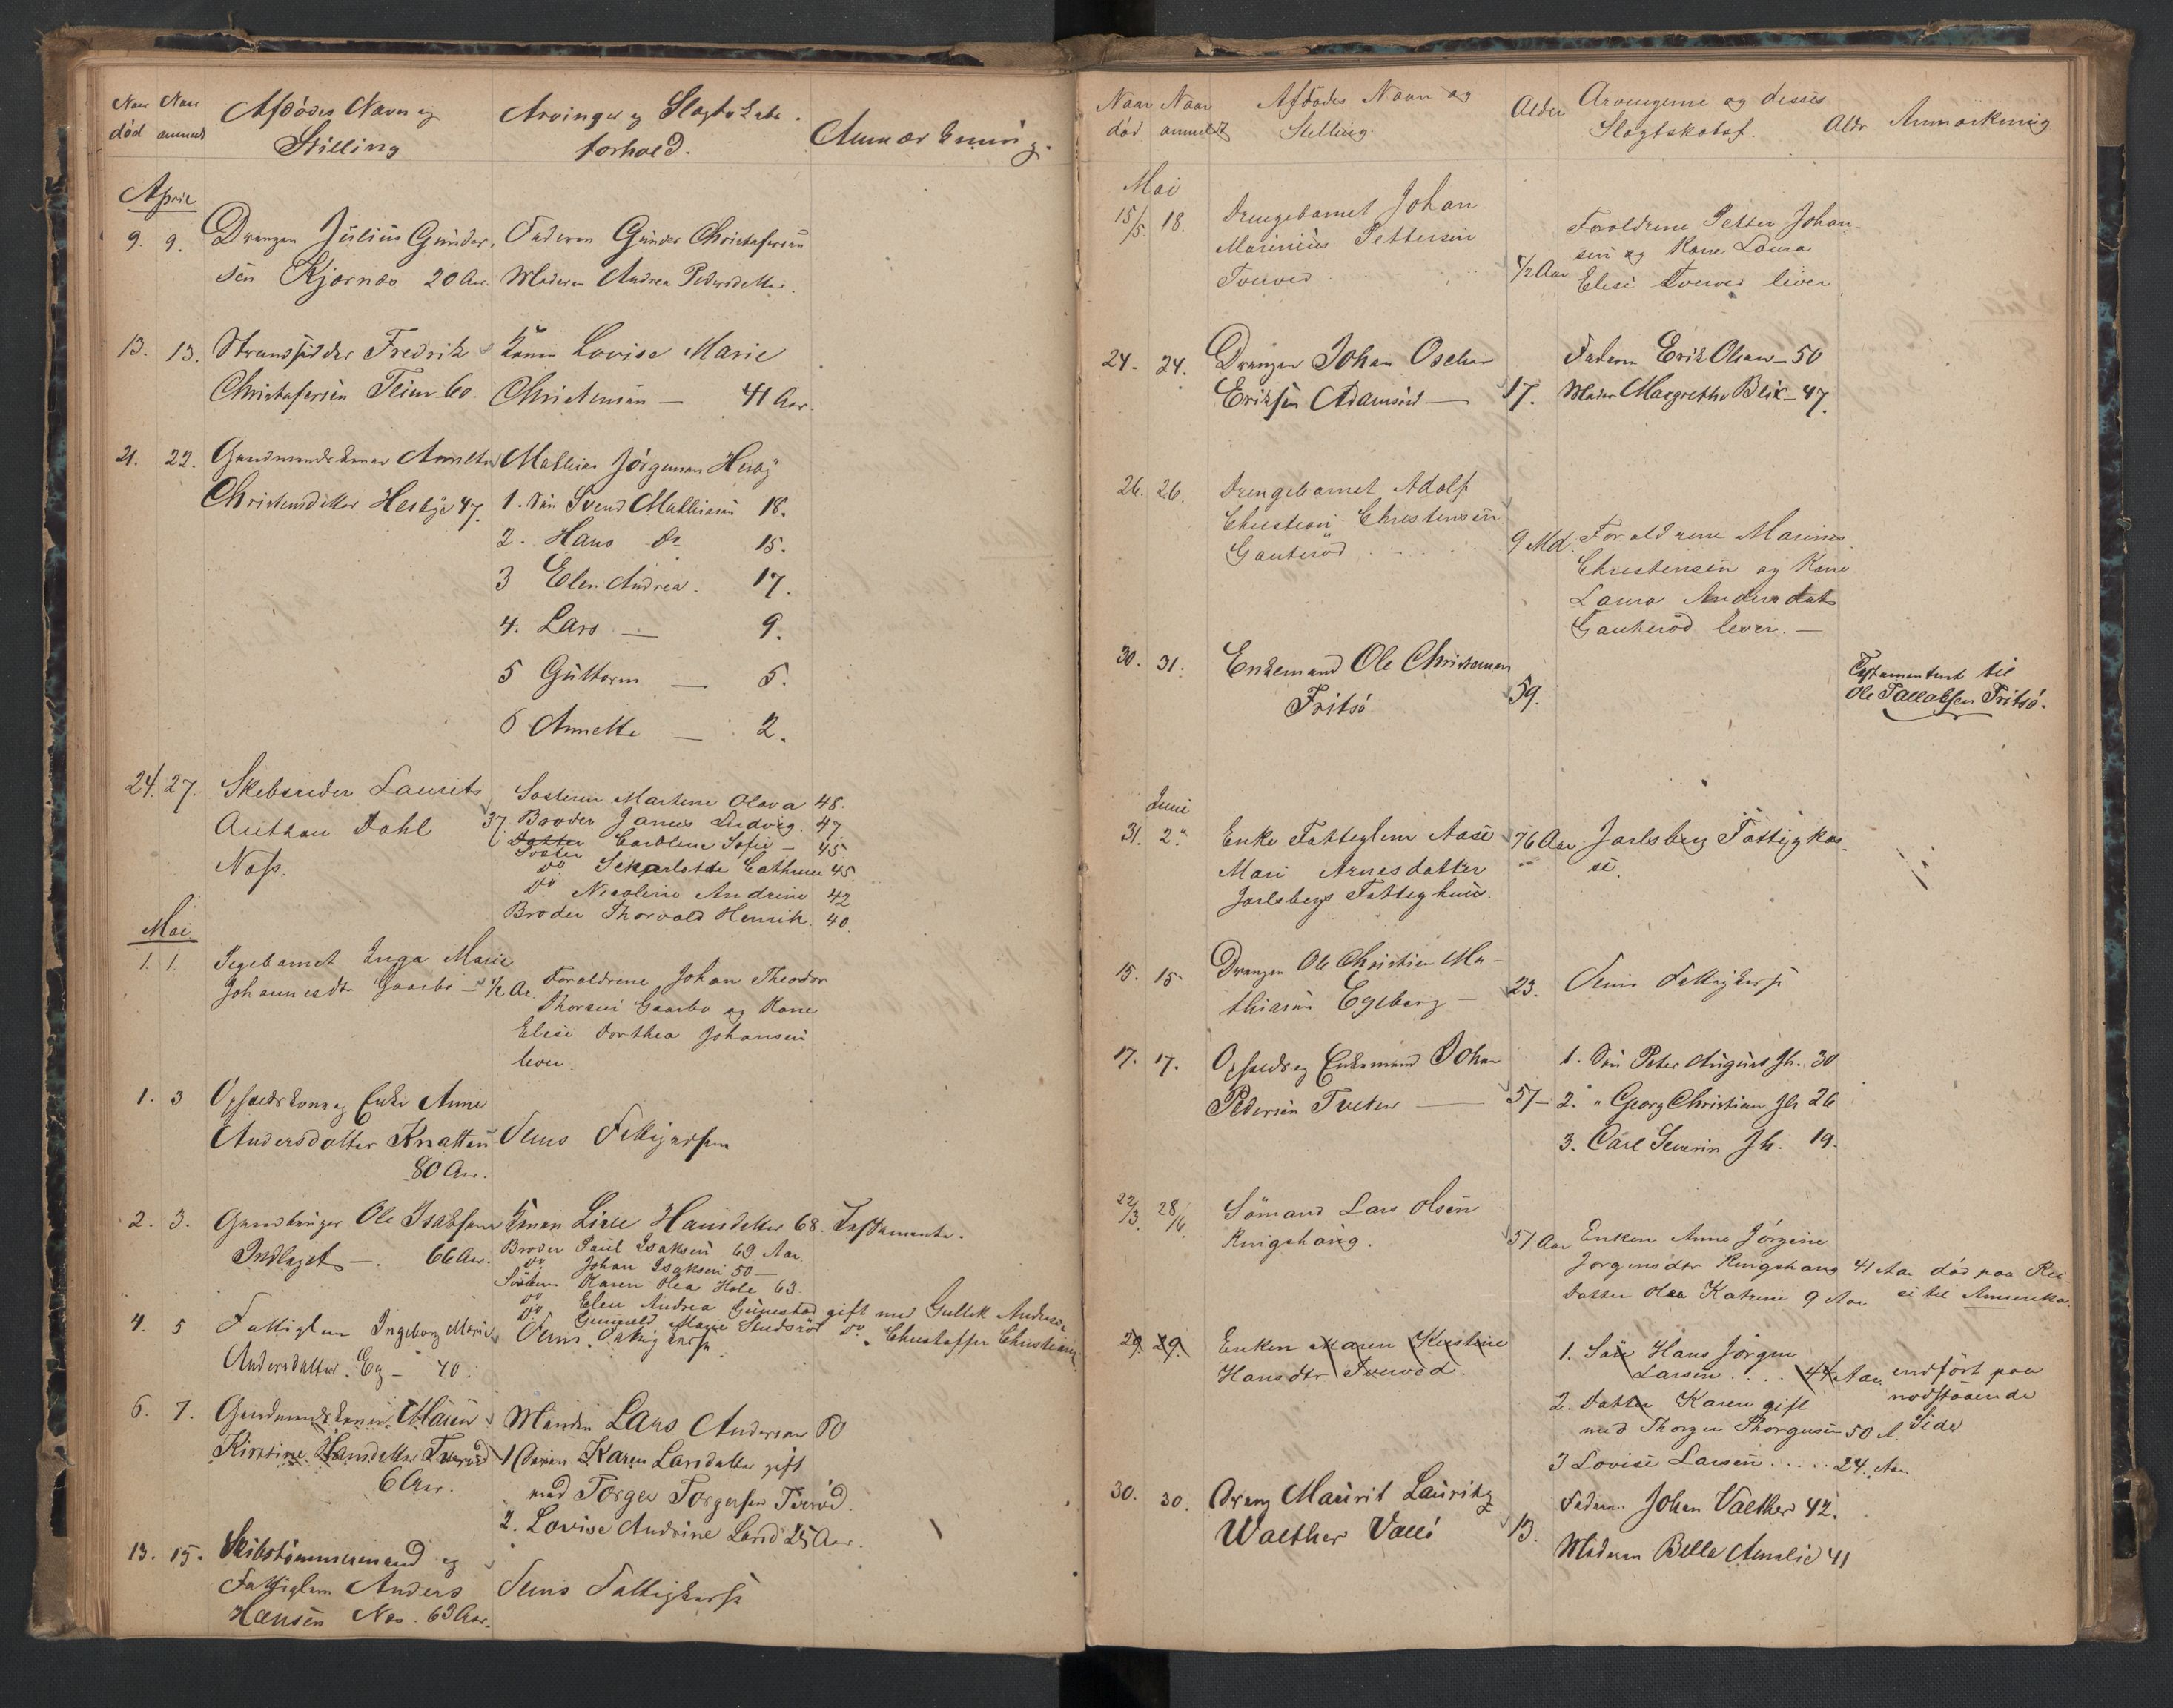 Naar Naar Afdødes Navn og Arvinger og Slægtskabs Anmærkning.
død anmeldt Stilling forhold.
April
9. 9. Drengen Julius Gunder- Faderen Gunder Christofersen
sen Kjærnæs 20 Aar. Moderen Andrea Pedersdatter.
13. 13. Strandsidder Fredrik Konen Lovise Marie
Christofersen Teien 60. Christensen — 41 Aar.
21. 22. Gaardmandskone Annette Mathias Jørgensen Hesby
Christensdatter Hesbye 47. 1. Søn Svend Mathiasen 18.
2. Hans do 15.
3 Elen Andrea. 17.
4. Lars — 9.
5 Guttorm — 5.
6 Annette — 2.
24. 27. Skibsreder Laurits Søsteren Martine Olava 48.
Anthon Dahl 37 Broder Janus Ludvig 47
Næss. Datter Søster Caroline Sofie — 45
do Scharlotte Cathrine 45.
do Nicoline Andrine 42
Broder Thorvald Henrik 40.
Mai
1. 1. Pigebarnet Inga Marie
Johannesdtr Gaarbo — 1/2 Aar Forældrene Johan Theodor
Thorsen Gaarbo og Kone
Elise Dorthea Johansen
lever.
1. 3 Opsidderkone og Enke Anne
Andersdatter Knatten Sems Fattigkasse
80 Aar.
2. 3. Gaardbruger Ole Isaksen Konen Lisse Hansdatter 68. Testamente.
Indlaget —. 66 Aar. Broder Paul Isaksen 69 Aar
do Johan Isaksen 50 —
Søsteren Karen Olea Hole 63
do Elen Andrea Gunestad gift med Gullik Andersen
do Gunhild Marie Studsrød do " Christoffer Christians.
4. 5 Fattiglem Ingeborg Marie Sems Fattigkasse.
Andersdatter Eg — 70.
6. 7. Gaardmandskonen Maren Manden Lars Andersen 80
Kirstine Hansdatter Tverød 1 Karen Larsdatter gift
6 Aar. med Torger Torgersen Tverød.
2. Lovise Andrine Larsd 25 Aar.
13. 15. Skibstømmermand og
Fattiglem Anders Sems Fattigkasse
Hansen Næs. 63 Aar.
Naar Naar Afdødes Navn og Alder Arvingerne og disses Aldr Anmærkning
død anmeldt Stilling. Slægtskabsf.
Mai
15/5 18. Drengebarnet Johan Forældrene Petter Johan-
Marinius Pettersen sen og Kone Laura
Tverved 1/2 Aar Elise Tverved lever
24. 24. Drengen Johan Oschar Faderen Erik Olsen — 50
Eriksen Adamsrød — 17. Moder Margrethe Blix — 47.
26. 26. Drengebarnet Adolf
Christian Christensen
Gauterød 9 Md. Forældrene Marinius
Christensen og Kone
Laura Andersdatr
Gauterød lever. —
30. 31. Enkemand Ole Christensen Testamentent til
Fritsø 59. Ole Pallabsen Fritsø.
Juni
31. 2. Enke Fattiglem Aase 76 Aar Jarlsberg Fattigkas-
Mari Arnesdatter se.
Jarlsbergs Fattighuus.
15. 15 Drengen Ole Christian Ma-
thiasen Egeberg — 23. Sems Fattigkasse
17. 17. Opsidder og Enkemand Johan 1. Søn Peter August Jh. 30
Pedersen Tveten — 57 — 2. " Georg Christian Jh 26
3. Carl Severin Jh. 19.
22/3 28/6 Sømand Lars Olsen
Ringshaug. 51 Aar Enken Anne Jørgine
Jørgensdtr Ringshaug 41 Aar død paa Rei-
Datter Olea Katrine 9 Aar se til Amerika.
29. 29. Enken Maren Kirstine 1. Søn Hans Jørgen
Hansdtr Tverved. Larsen .... 44 Aar. indført paa
2. Datter Karen gift modstaaende
med Thorger Thorgersen 50 A. Side
3 Lovise Larsen ..... 24 Aar
30. 30. Dreng Maurit Lauritz Faderen Johan Valther 42.
Walther Vallø 13. Moderen Bella Amalie 41